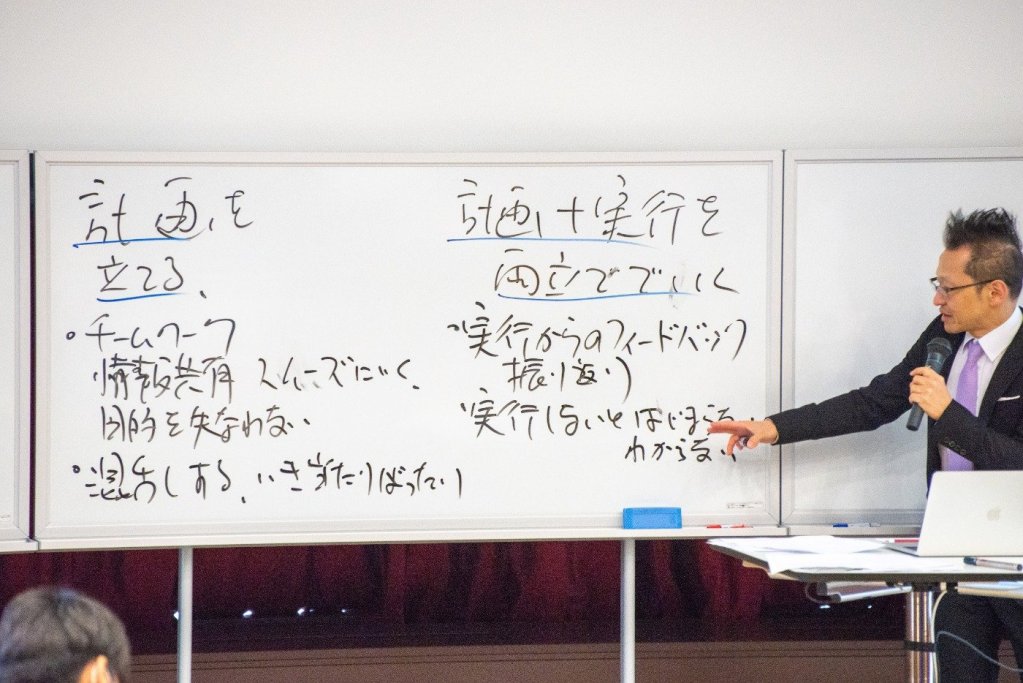 計画を
立てる、
・チームワーク
情報共有 スムーズにいく、
目的を失なわない
・いき当たりばったり
計画+実行を
両立でいく
・実行からのフィードバック
振り返り
実行しないとはじまらない
わからない